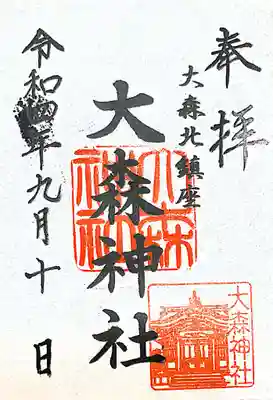 奉拝
大森北鎮座
大森神社
大森神社
令和四年九月十日
大森神社